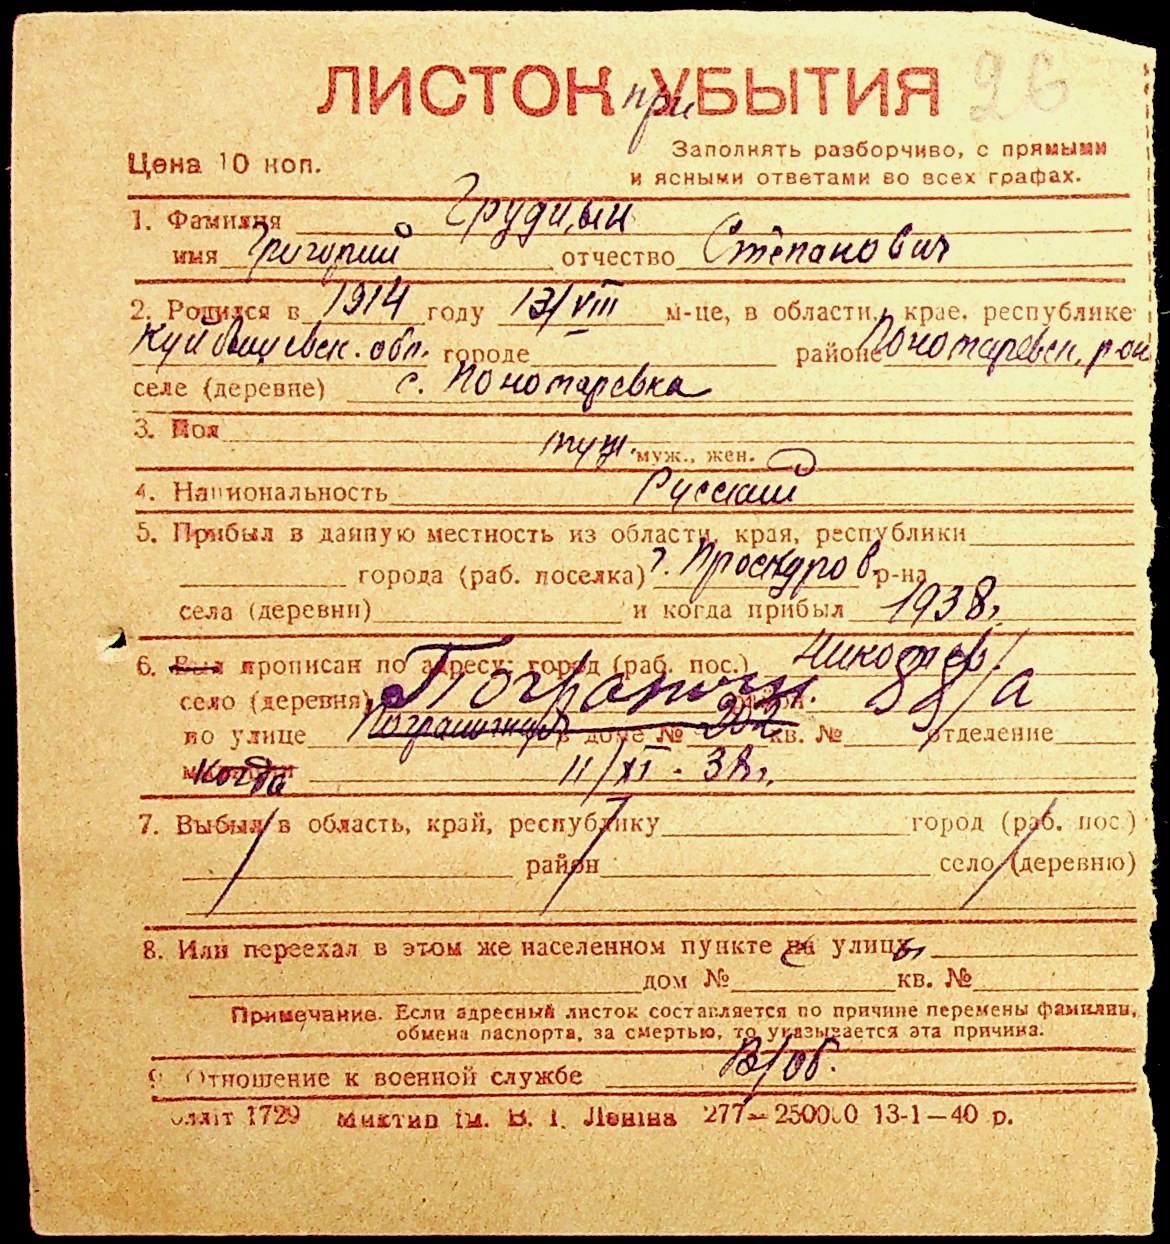 ЛИСТОК при УБЫТИЯ 26
Цена 10 коп.
Заполнять разборчиво, с прямыми
и ясными ответами во всех графах.
1. Фамилия Грудцын
имя Григорий отчество Степанович
2. Родился в 1914 году 13/VIII м-це, в области, крае, республике
Куйбышевск. обл. городе районе Пономаревск. р-он
селе (деревне) с. Пономаревка
3. Пол муж.
муж., жен.
4. Национальность Русский
5. Прибыл в данную местность из области, края, республики
города (раб. поселка) г. Проскуров р-на
села (деревни) и когда прибыл 1938 г.
6. Был прописан по адресу: город (раб. пос.) Николаев
село (деревня) Пограничн. 88/а
по улице Пограничная в доме № 202 кв. № отделение
Когда 11/XI - 38 г.
7. Выбыл в область, край, республику город (раб. пос.)
район село (деревню)
8. Или переехал в этом же населенном пункте с улицы
дом № кв. №
Примечание. Если адресный листок составляется по причине перемены фамилии,
обмена паспорта, за смертью, то указывается эта причина.
9. Отношение к военной службе В/об.
1729 Миктип ім. В. І. Леніна 277—250000 13-1—40 р.